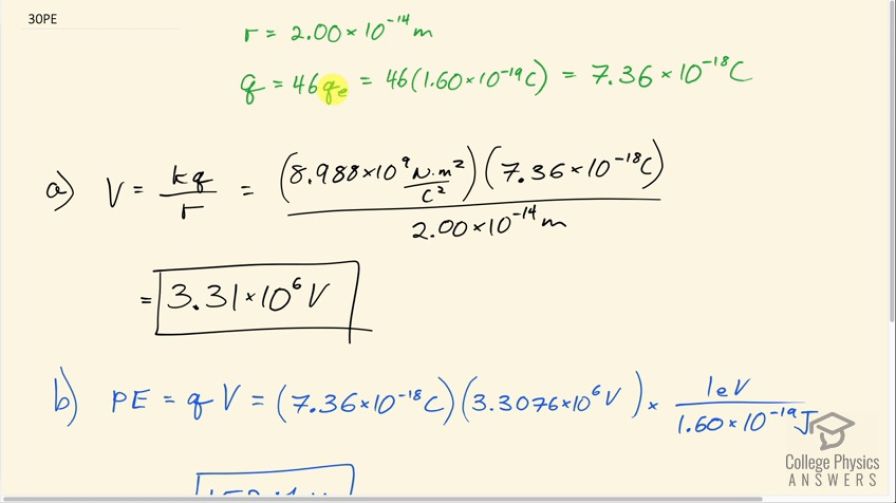 30PE
r = 2.00 × 10⁻¹⁴ m
q = 46 qₑ = 46 (1.60 × 10⁻¹⁹ C) = 7.36 × 10⁻¹⁸ C
a) V = kq / r = (8.988 × 10⁹ N·m² / C²) (7.36 × 10⁻¹⁸ C) / 2.00 × 10⁻¹⁴ m
= 3.31 × 10⁶ V
b) PE = q V = (7.36 × 10⁻¹⁸ C) (3.3076 × 10⁶ V) × 1 eV / 1.60 × 10⁻¹⁹ J
College Physics
ANSWERS